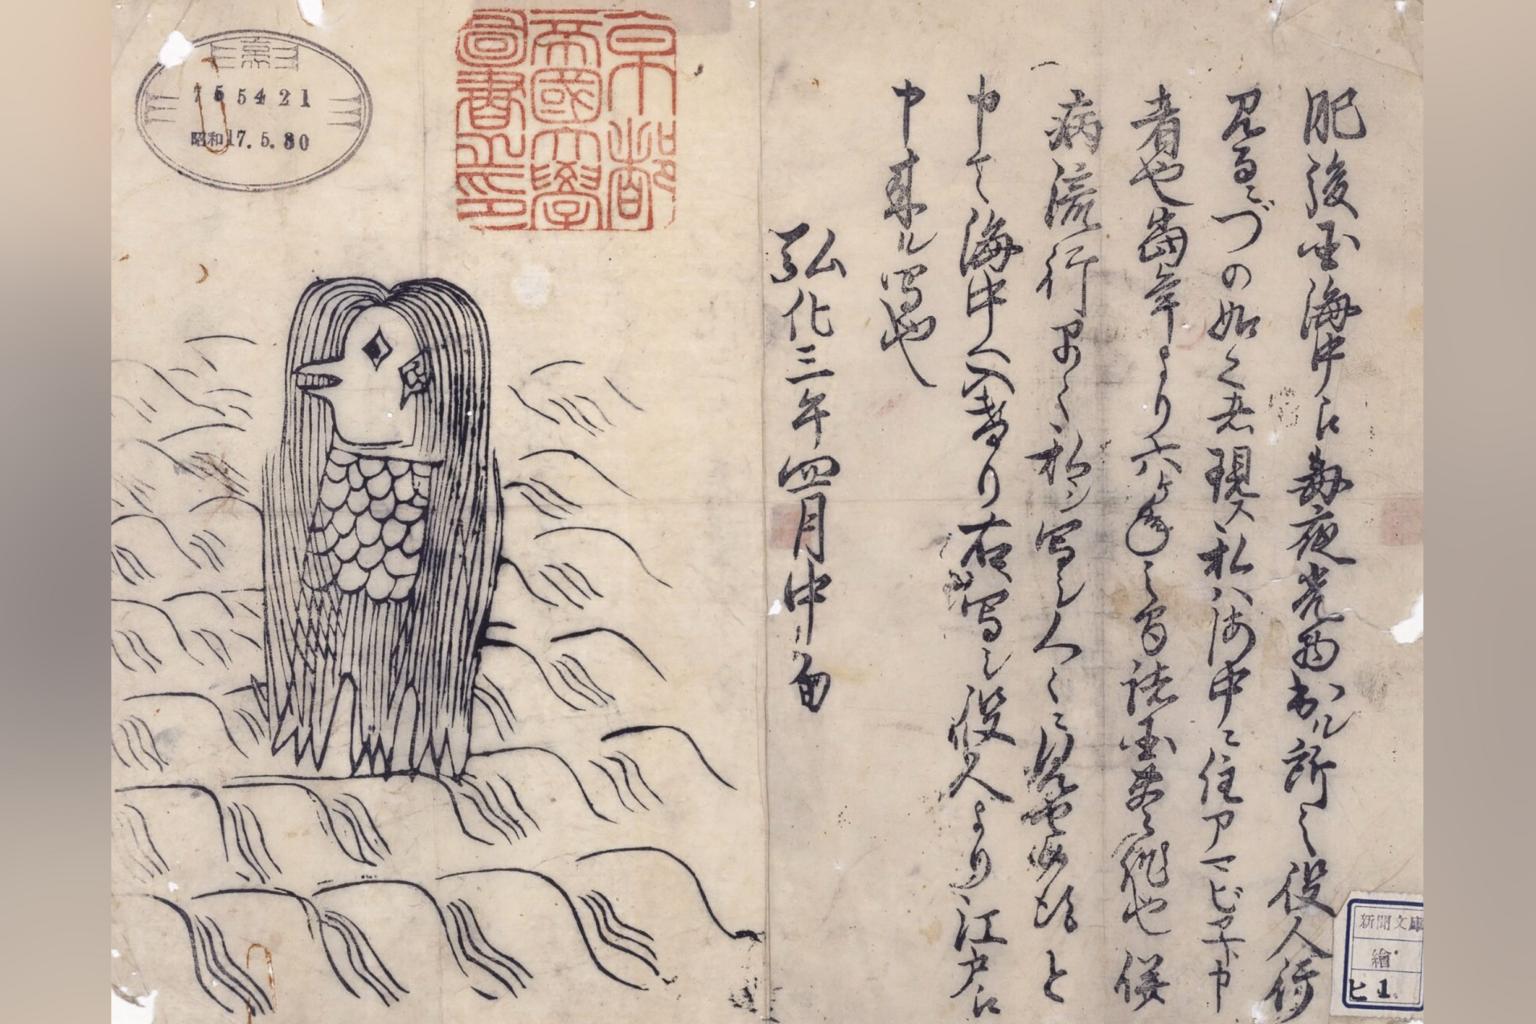 肥後国海中江毎夜光物出ル所之役人行
見るニづの如く者現ス私ハ海中ニ住アマビヱト申
者也當年より六ヶ年之間諸国豊作也併
病流行早々私シ写シ人々ニ見せ候得と
申て海中へ入けり右写シ役人より江戸江
申来ル写也
弘化三年四月中旬
京都
帝國大學
圖書之印
755421
昭和17.5.30
新聞文庫
繪
ヒ1.